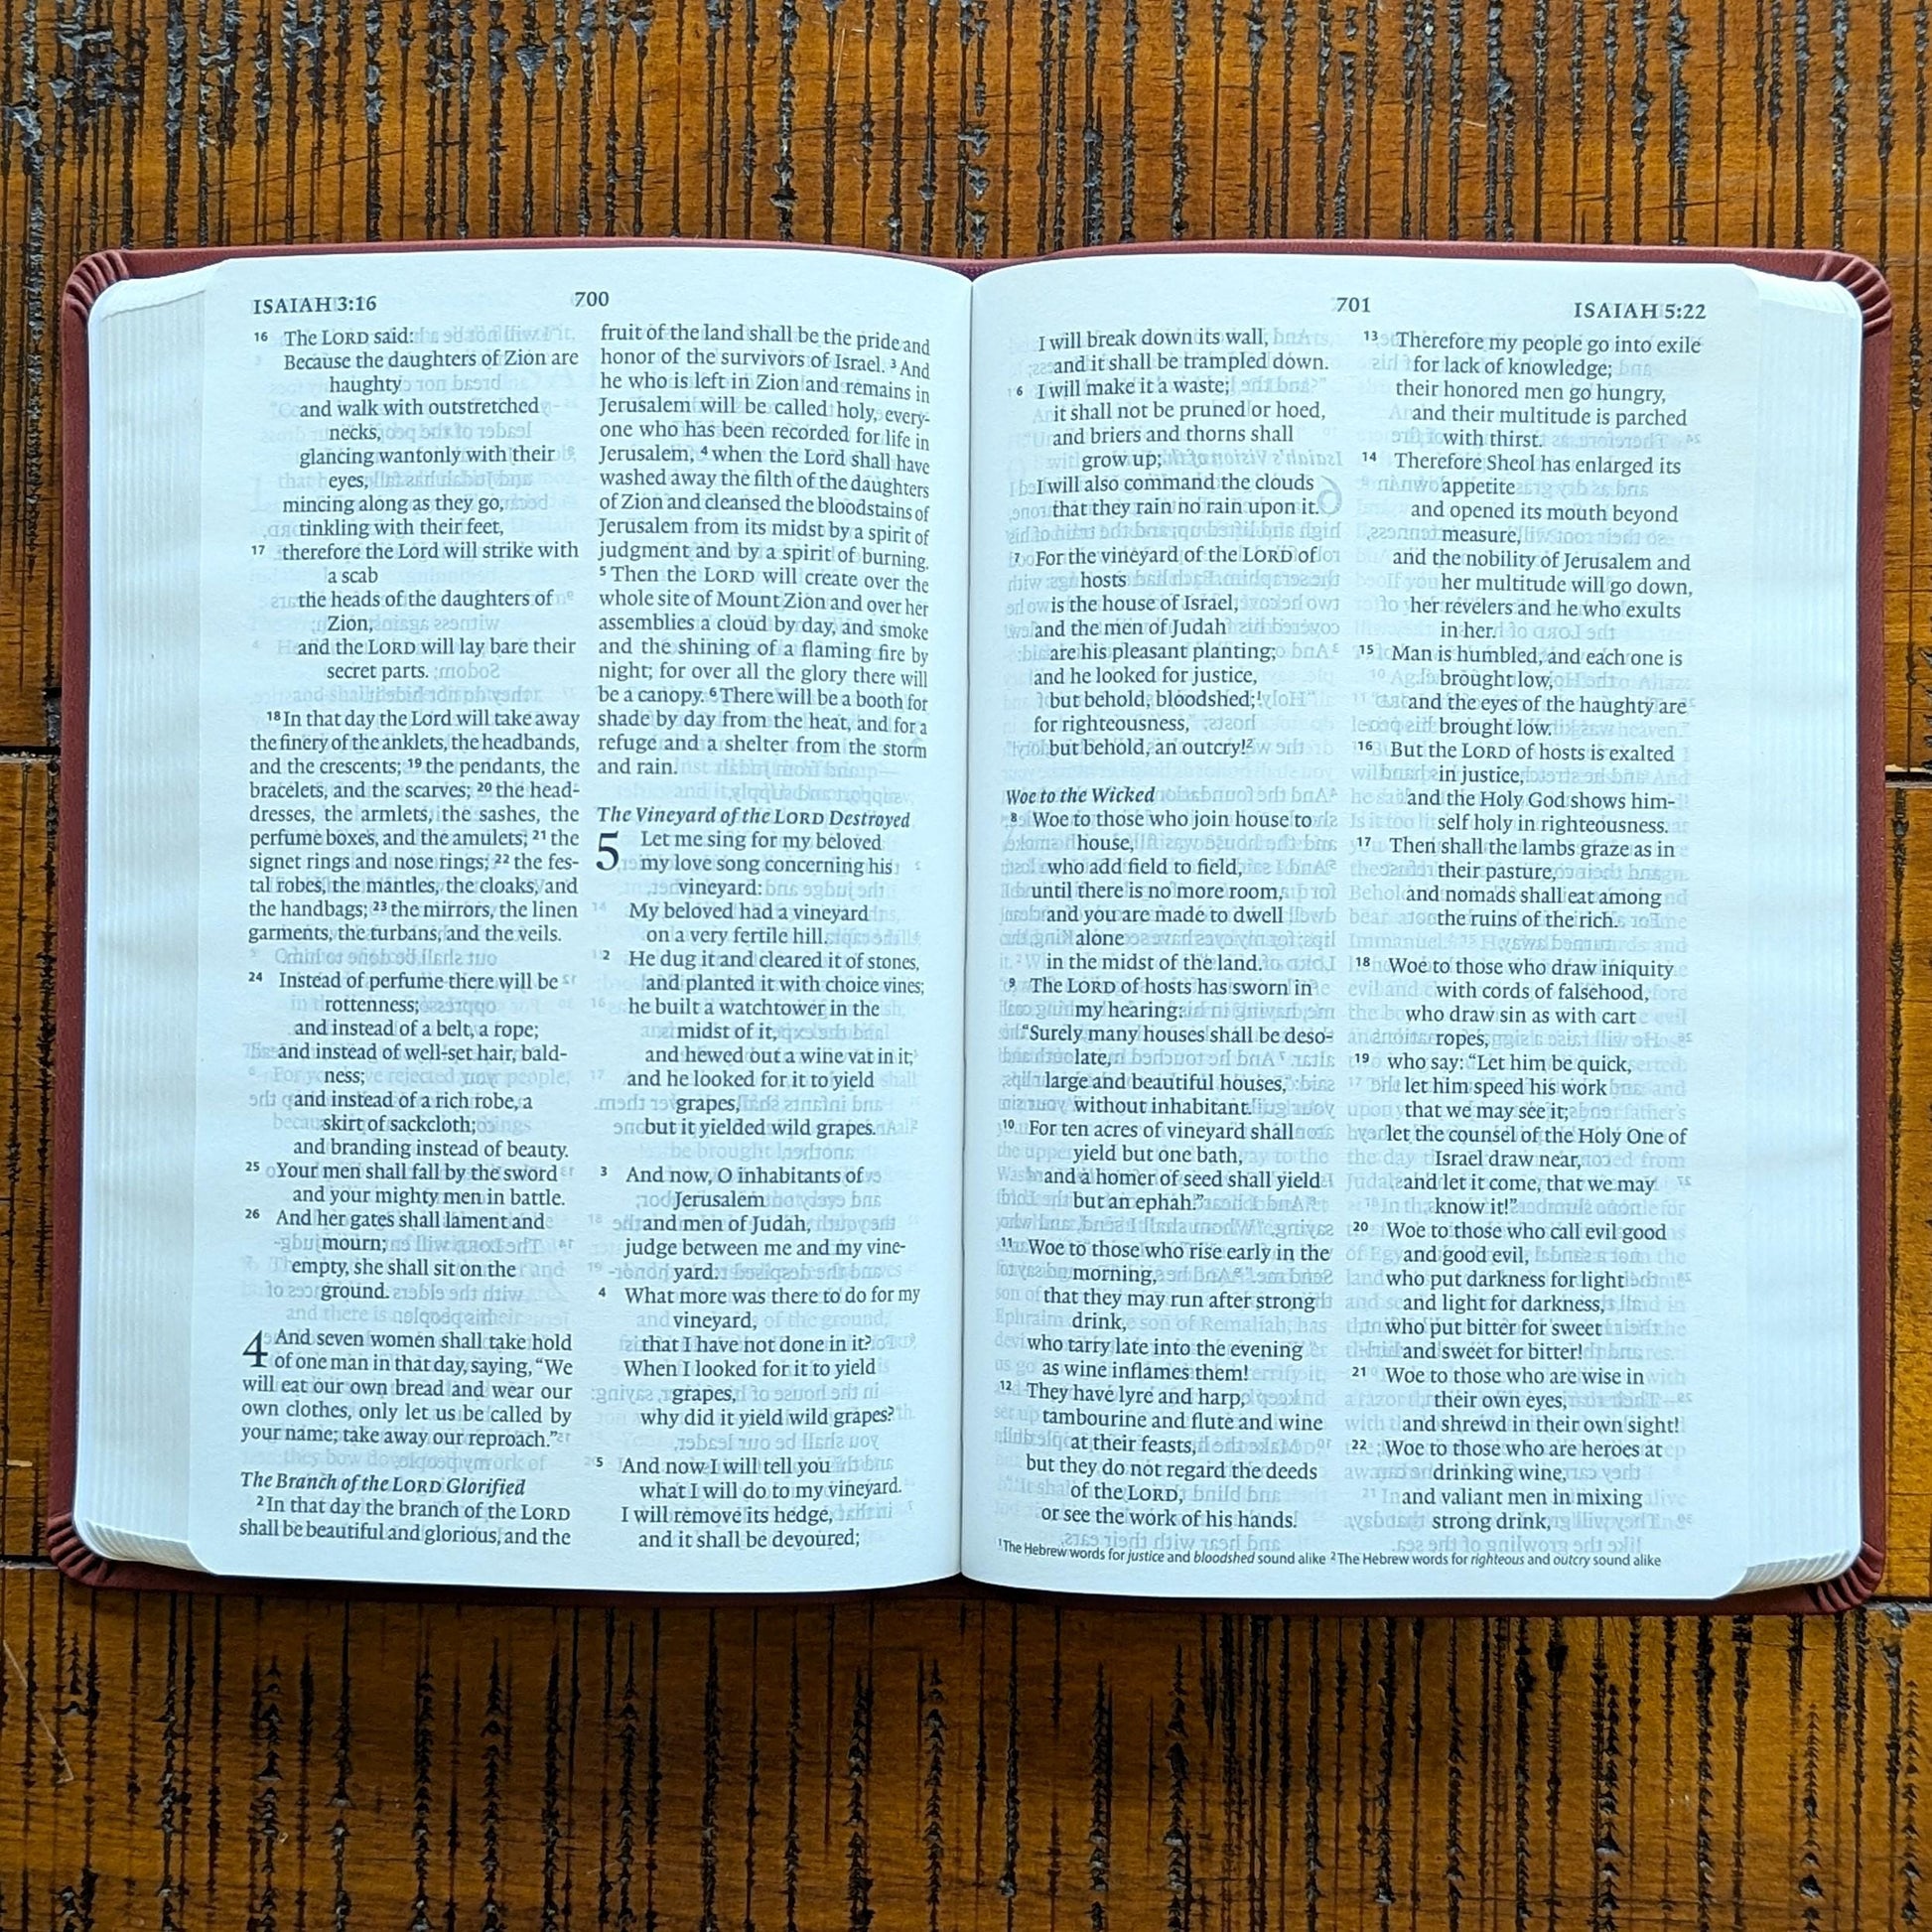 ISAIAH 3:16
700
16 The LORD said:
Because the daughters of Zion are
haughty
and walk with outstretched
necks,
glancing wantonly with their
eyes,
mincing along as they go,
tinkling with their feet,
17 therefore the Lord will strike with
a scab
the heads of the daughters of
Zion,
and the LORD will lay bare their
secret parts.
18 In that day the Lord will take away
the finery of the anklets, the headbands,
and the crescents; 19 the pendants, the
bracelets, and the scarves; 20 the head-
dresses, the armlets, the sashes, the
perfume boxes, and the amulets; 21 the
signet rings and nose rings; 22 the fes-
tal robes, the mantles, the cloaks, and
the handbags; 23 the mirrors, the linen
garments, the turbans, and the veils.
24 Instead of perfume there will be
rottenness;
and instead of a belt, a rope;
and instead of well-set hair, bald-
ness;
and instead of a rich robe, a
skirt of sackcloth;
and branding instead of beauty.
25 Your men shall fall by the sword
and your mighty men in battle.
26 And her gates shall lament and
mourn;
empty, she shall sit on the
ground.
4 And seven women shall take hold
of one man in that day, saying, “We
will eat our own bread and wear our
own clothes, only let us be called by
your name; take away our reproach.”
The Branch of the LORD Glorified
2 In that day the branch of the LORD
shall be beautiful and glorious, and the
fruit of the land shall be the pride and
honor of the survivors of Israel. 3 And
he who is left in Zion and remains in
Jerusalem will be called holy, every-
one who has been recorded for life in
Jerusalem, 4 when the Lord shall have
washed away the filth of the daughters
of Zion and cleansed the bloodstains of
Jerusalem from its midst by a spirit of
judgment and by a spirit of burning.
5 Then the LORD will create over the
whole site of Mount Zion and over her
assemblies a cloud by day, and smoke
and the shining of a flaming fire by
night; for over all the glory there will
be a canopy. 6 There will be a booth for
shade by day from the heat, and for a
refuge and a shelter from the storm
and rain.
The Vineyard of the LORD Destroyed
5 Let me sing for my beloved
my love song concerning his
vineyard:
My beloved had a vineyard
on a very fertile hill.
2 He dug it and cleared it of stones,
and planted it with choice vines;
he built a watchtower in the
midst of it,
and hewed out a wine vat in it;
and he looked for it to yield
grapes,
but it yielded wild grapes.
3 And now, O inhabitants of
Jerusalem
and men of Judah,
judge between me and my vine-
yard.
4 What more was there to do for my
vineyard,
that I have not done in it?
When I looked for it to yield
grapes,
why did it yield wild grapes?
5 And now I will tell you
what I will do to my vineyard.
I will remove its hedge,
and it shall be devoured;
701
ISAIAH 5:22
I will break down its wall,
and it shall be trampled down.
6 I will make it a waste;
it shall not be pruned or hoed,
and briers and thorns shall
grow up;
I will also command the clouds
that they rain no rain upon it.
7 For the vineyard of the LORD of
hosts
is the house of Israel,
and the men of Judah
are his pleasant planting;
and he looked for justice,
but behold, bloodshed;1
for righteousness,
but behold, an outcry!2
Woe to the Wicked
8 Woe to those who join house to
house,
who add field to field,
until there is no more room,
and you are made to dwell
alone
in the midst of the land.
9 The LORD of hosts has sworn in
my hearing:
“Surely many houses shall be deso-
late,
large and beautiful houses,
without inhabitant.
10 For ten acres of vineyard shall
yield but one bath,
and a homer of seed shall yield
but an ephah.”
11 Woe to those who rise early in the
morning,
that they may run after strong
drink,
who tarry late into the evening
as wine inflames them!
12 They have lyre and harp,
tambourine and flute and wine
at their feasts,
but they do not regard the deeds
of the LORD,
or see the work of his hands.
13 Therefore my people go into exile
for lack of knowledge;
their honored men go hungry,
and their multitude is parched
with thirst.
14 Therefore Sheol has enlarged its
appetite
and opened its mouth beyond
measure,
and the nobility of Jerusalem and
her multitude will go down,
her revelers and he who exults
in her.
15 Man is humbled, and each one is
brought low,
and the eyes of the haughty are
brought low.
16 But the LORD of hosts is exalted
in justice,
and the Holy God shows him-
self holy in righteousness.
17 Then shall the lambs graze as in
their pasture,
and nomads shall eat among
the ruins of the rich.
18 Woe to those who draw iniquity
with cords of falsehood,
who draw sin as with cart
ropes,
19 who say: “Let him be quick,
let him speed his work
that we may see it;
let the counsel of the Holy One of
Israel draw near,
and let it come, that we may
know it!”
20 Woe to those who call evil good
and good evil,
who put darkness for light
and light for darkness,
who put bitter for sweet
and sweet for bitter!
21 Woe to those who are wise in
their own eyes,
and shrewd in their own sight!
22 Woe to those who are heroes at
drinking wine,
and valiant men in mixing
strong drink,
1 The Hebrew words for justice and bloodshed sound alike 2 The Hebrew words for righteous and outcry sound alike